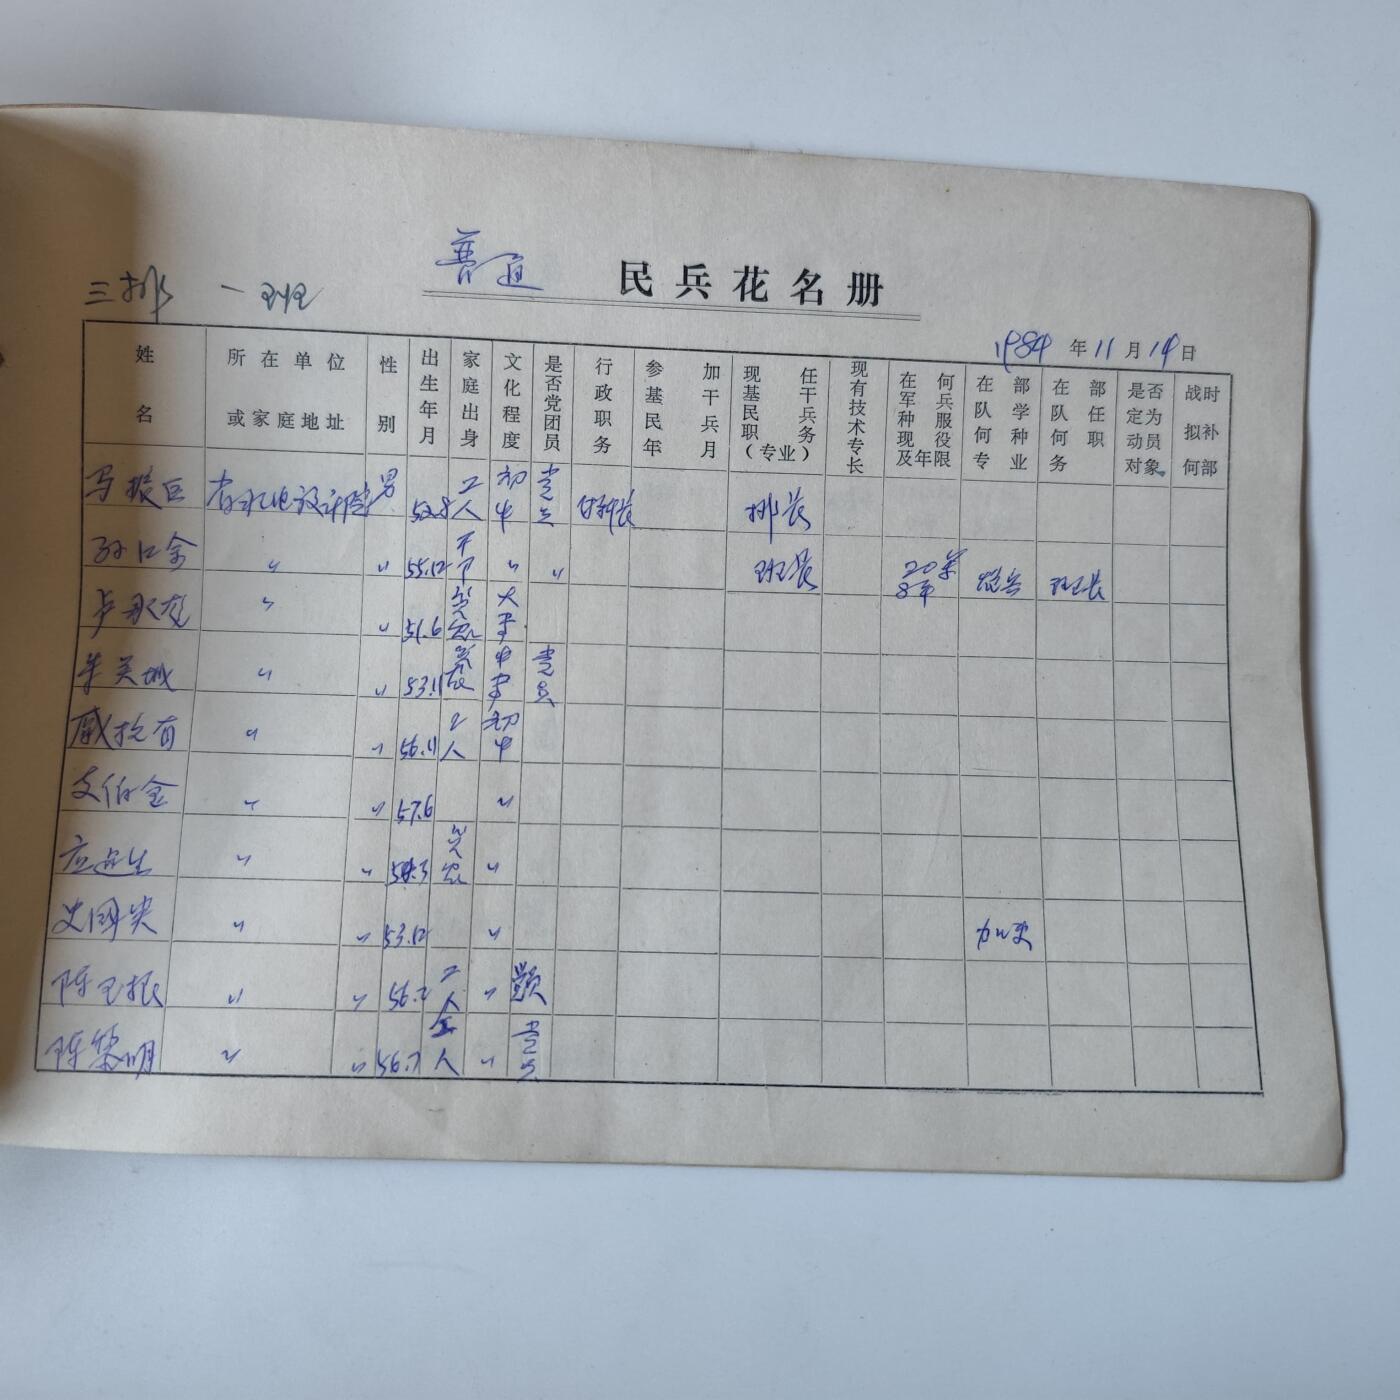 普通 民兵花名册
三排 一班
1984年11月14日
姓名 所在单位或家庭地址 性别 出生年月 家庭出身 文化程度 是否党团员 行政职务 参加基干民兵年月 现任基干民兵职务（专业） 现有技术专长 在何军兵种服现役及年限 在部队学何种专业 在部队任何职务 是否定为动员对象 战时拟补何部
马 男 工人 初中 党员 排长
孙 〃 〃 55.12 〃 〃 班长 8年 炮兵 班长
卢永龙 〃 〃 51.6 大专
朱 城 〃 〃 53.11 中专 党员
戚 有 〃 〃 56.11 工人 初中
文伯金 〃 〃 57.6 〃
应 生 〃 〃 〃
史国 〃 〃 53.12 〃
陈玉根 〃 〃 56.2 工人 〃
陈黎明 〃 〃 56.7 工人 〃 党员